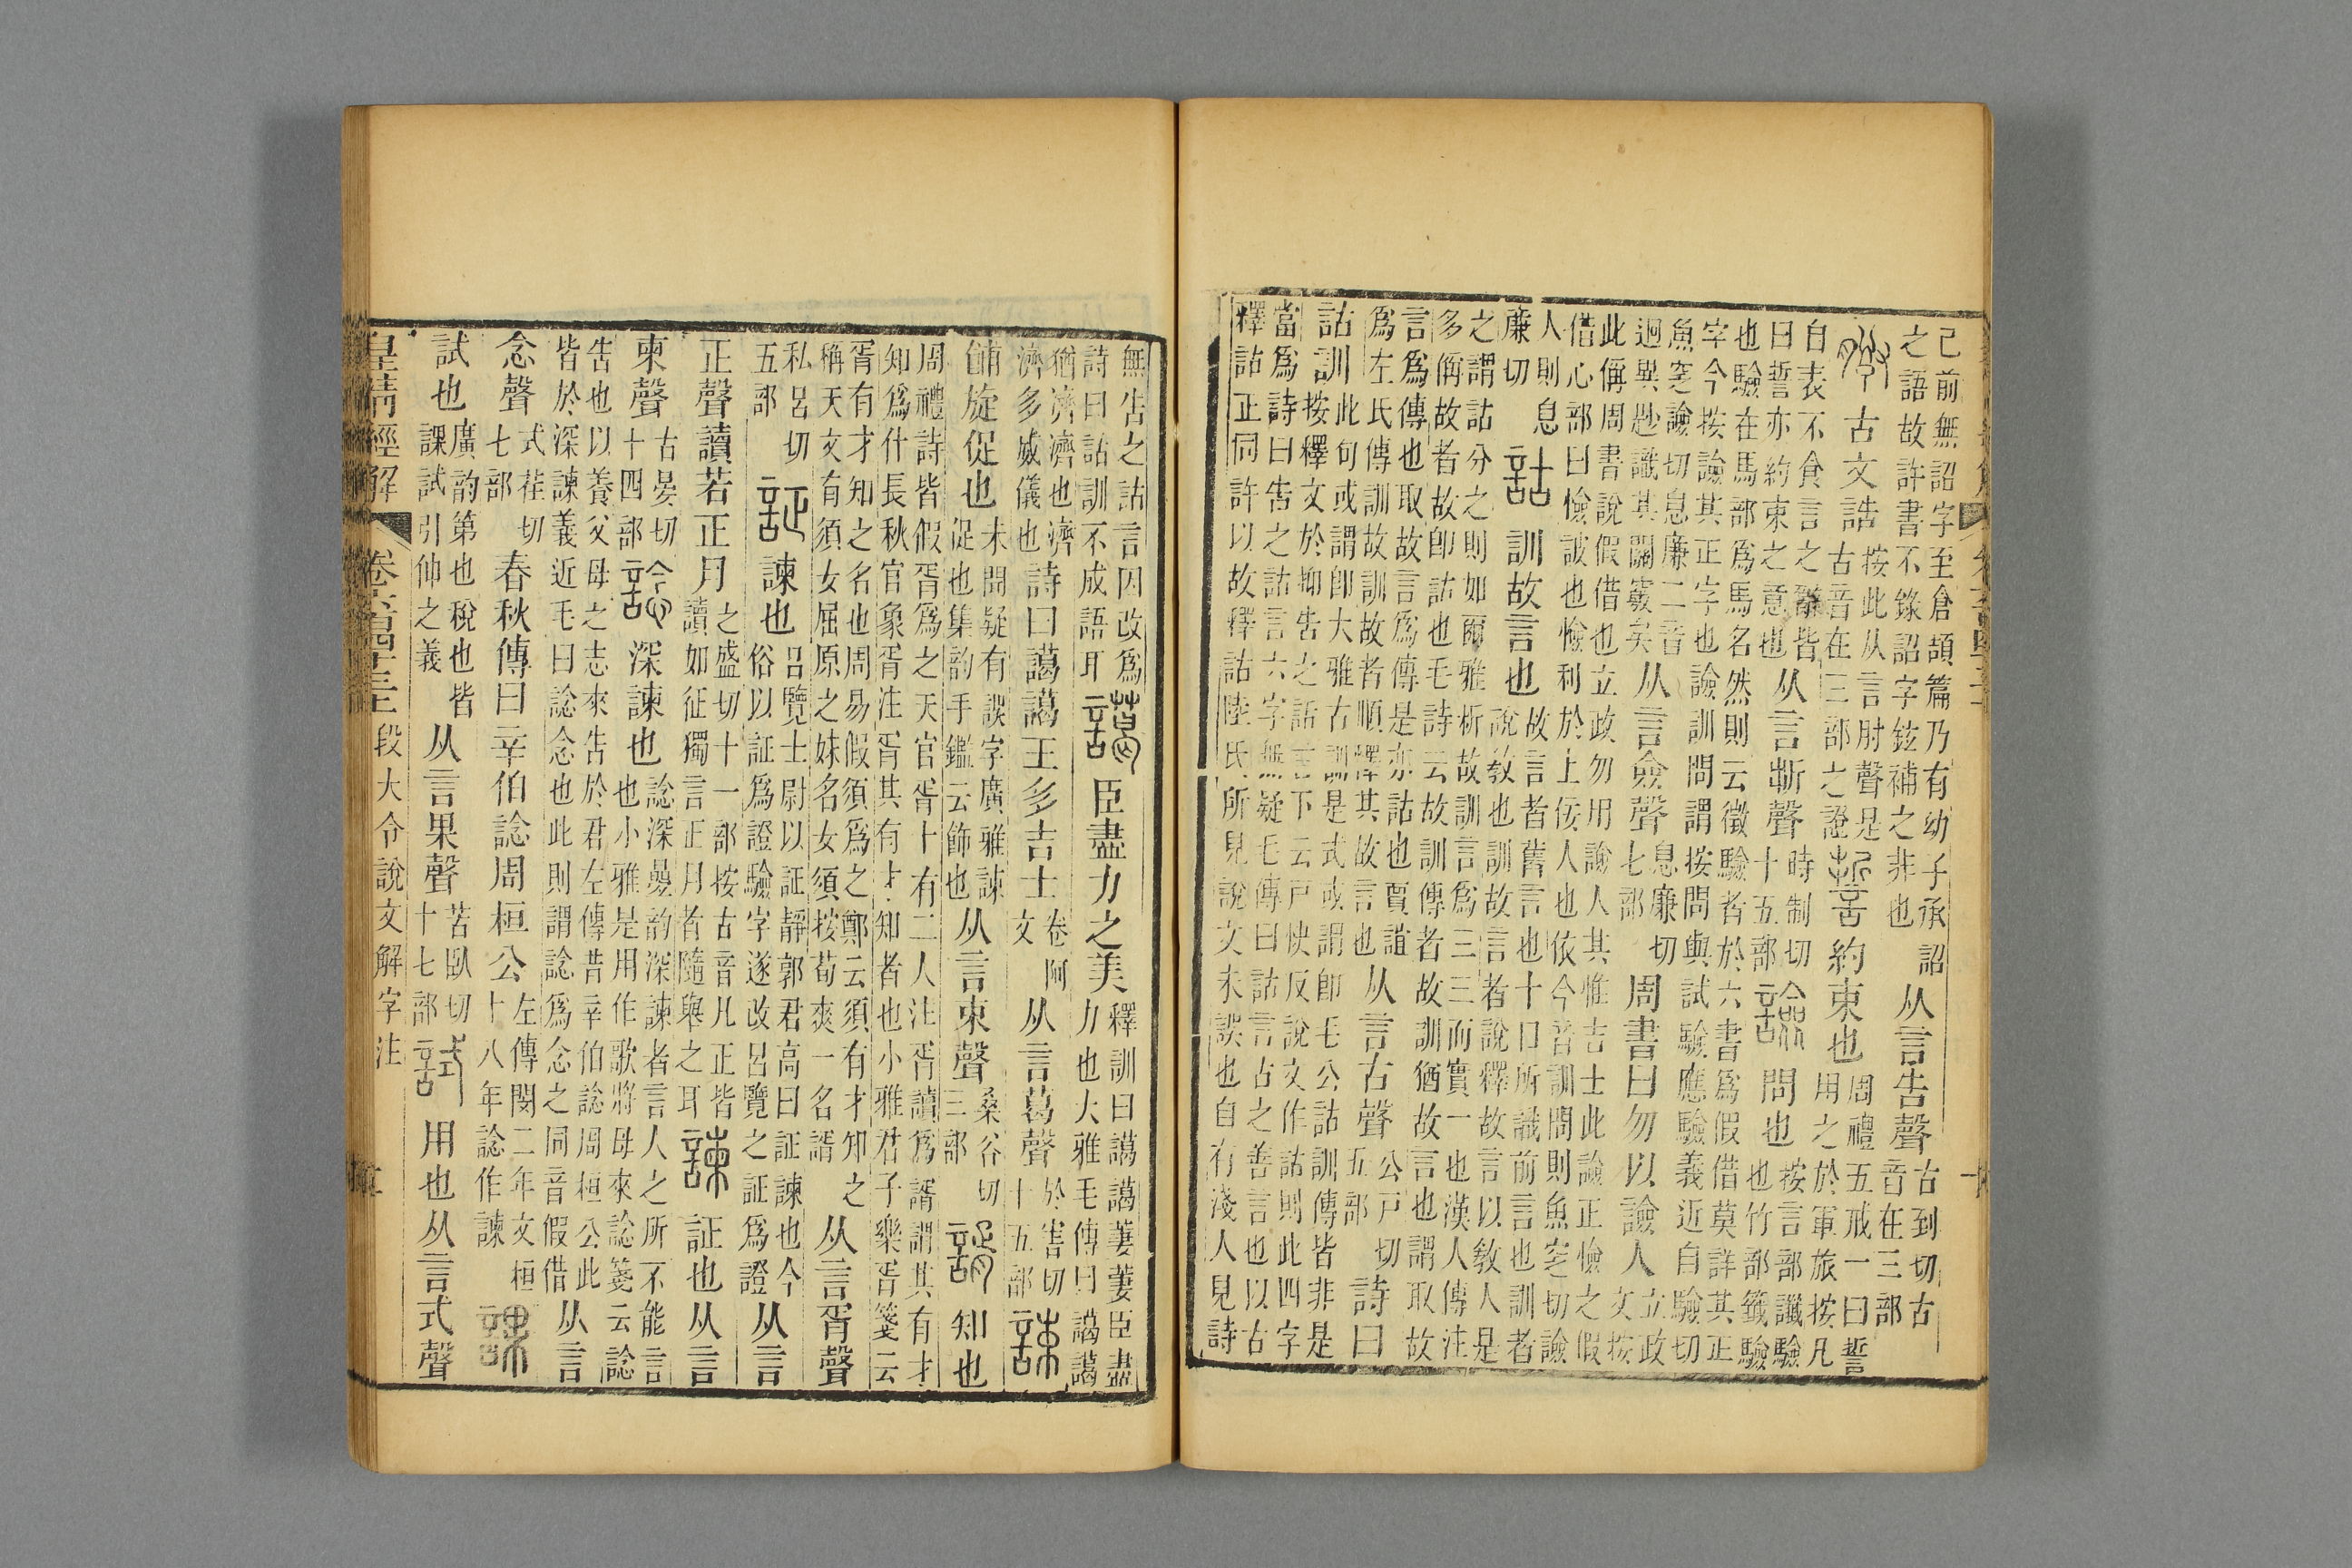 己前無詔字至倉頡篇乃有幼子承詔之語故許書不錄詔字鉉補之非也从言告聲古到切古音在三部
古文誥按此从言肘聲是古音在三部之證誓約束也周禮五戒一曰誓用之於軍旅按凡
自表不食言之辭皆曰誓亦約束之意也从言斬聲時制切十五部譣問也按言部讖驗也竹部籤驗
也驗在馬部為馬名然則云徵驗者於六書爲假借莫詳其正字今按譣其正字也譣訓問謂按問與試驗應驗義近自驗切
魚窆譣切息廉二音迥異尟識其關竅矣从言僉聲息廉切七部周書曰勿以譣人立政文按
此偁周書說假借也立政勿用譣人其惟吉士此譣正憸之假借心部曰憸詖也憸利於上佞人也依今音訓問則魚窆切譣
人則息廉切詁訓故言也故言者舊言也十口所識前言也訓者說教也訓故言者說釋故言以教人是
之謂詁分之則如爾雅析故訓言爲三三而實一也漢人傳注多偁故者故卽詁也毛詩云故訓傳者故訓猶故言也謂取故
言爲傳也取故言爲傳是亦詁也賈誼爲左氏傳訓故訓故者順釋其故言也从言古聲公戶切五部詩曰
詁訓此句或謂卽大雅古訓是式或謂卽毛公詁訓傳皆非是按釋文於抑告之話言下云戶快反說文作詁則此四字
當爲詩曰告之詁言六字無疑毛傳曰詁言古之善言也以古釋詁正同許以故釋詁陸氏所見說文未誤也自有淺人見詩
無告之詁言因改爲詩曰詁訓不成語耳藹臣盡力之美釋訓曰藹藹萋萋臣盡力也大雅毛傳曰藹藹
猶濟濟也濟濟多威儀也詩曰藹藹王多吉士卷阿文从言葛聲於害切十五部諫
餔旋促也未聞疑有誤字廣雅諫促也集韵手鑑云飾也从言束聲桑谷切三部諝知也
周禮詩皆假胥爲之天官胥十有二人注胥讀爲諝謂其有才知爲什長秋官象胥注胥其有才知者也小雅君子樂胥箋云
胥有才知之名也周易假須爲之鄭云須有才知之稱天文有須女屈原之妹名女須按荀爽一名諝从言胥聲
私呂切五部証諫也呂覽士尉以証靜郭君高曰証諫也今俗以証爲證驗字遂改呂覽之証爲證从言
正聲讀若正月之盛切十一部按古音凡正皆讀如征獨言正月者隨舉之耳諫証也从言
柬聲古晏切十四部諗深諫也諗深曡韵深諫者言人之所不能言也小雅是用作歌將母來諗箋云諗
告也以養父母之志來告於君左傳昔辛伯諗周桓公此皆於深諫義近毛曰諗念也此則謂諗爲念之同音假借从言
念聲式荏切七部春秋傳曰辛伯諗周桓公左傳閔二年文桓十八年諗作諫課
試也廣韵第也稅也皆課試引伸之義从言果聲苦臥切十七部試用也从言式聲
皇清經解 卷六百四十三 段大令說文解字注